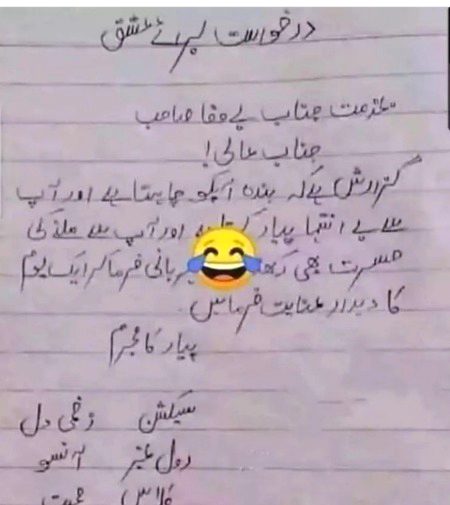 درخواست برائے عشق
بخدمت جناب بے وفا صاحب
جناب عالی!
گزارش ہے کہ بندہ آپکو چاہتا ہے اور آپ
سے بے انتہا پیار کرتا ہے اور آپ سے ملنے کی
حسرت بھی رکھ بانی فرما کر ایک یوم
کا دیدار عنایت فرمائیں
پیار کا مجرم
سیکشن زخمی دل
رول نمبر آنسو
کلاس محبت